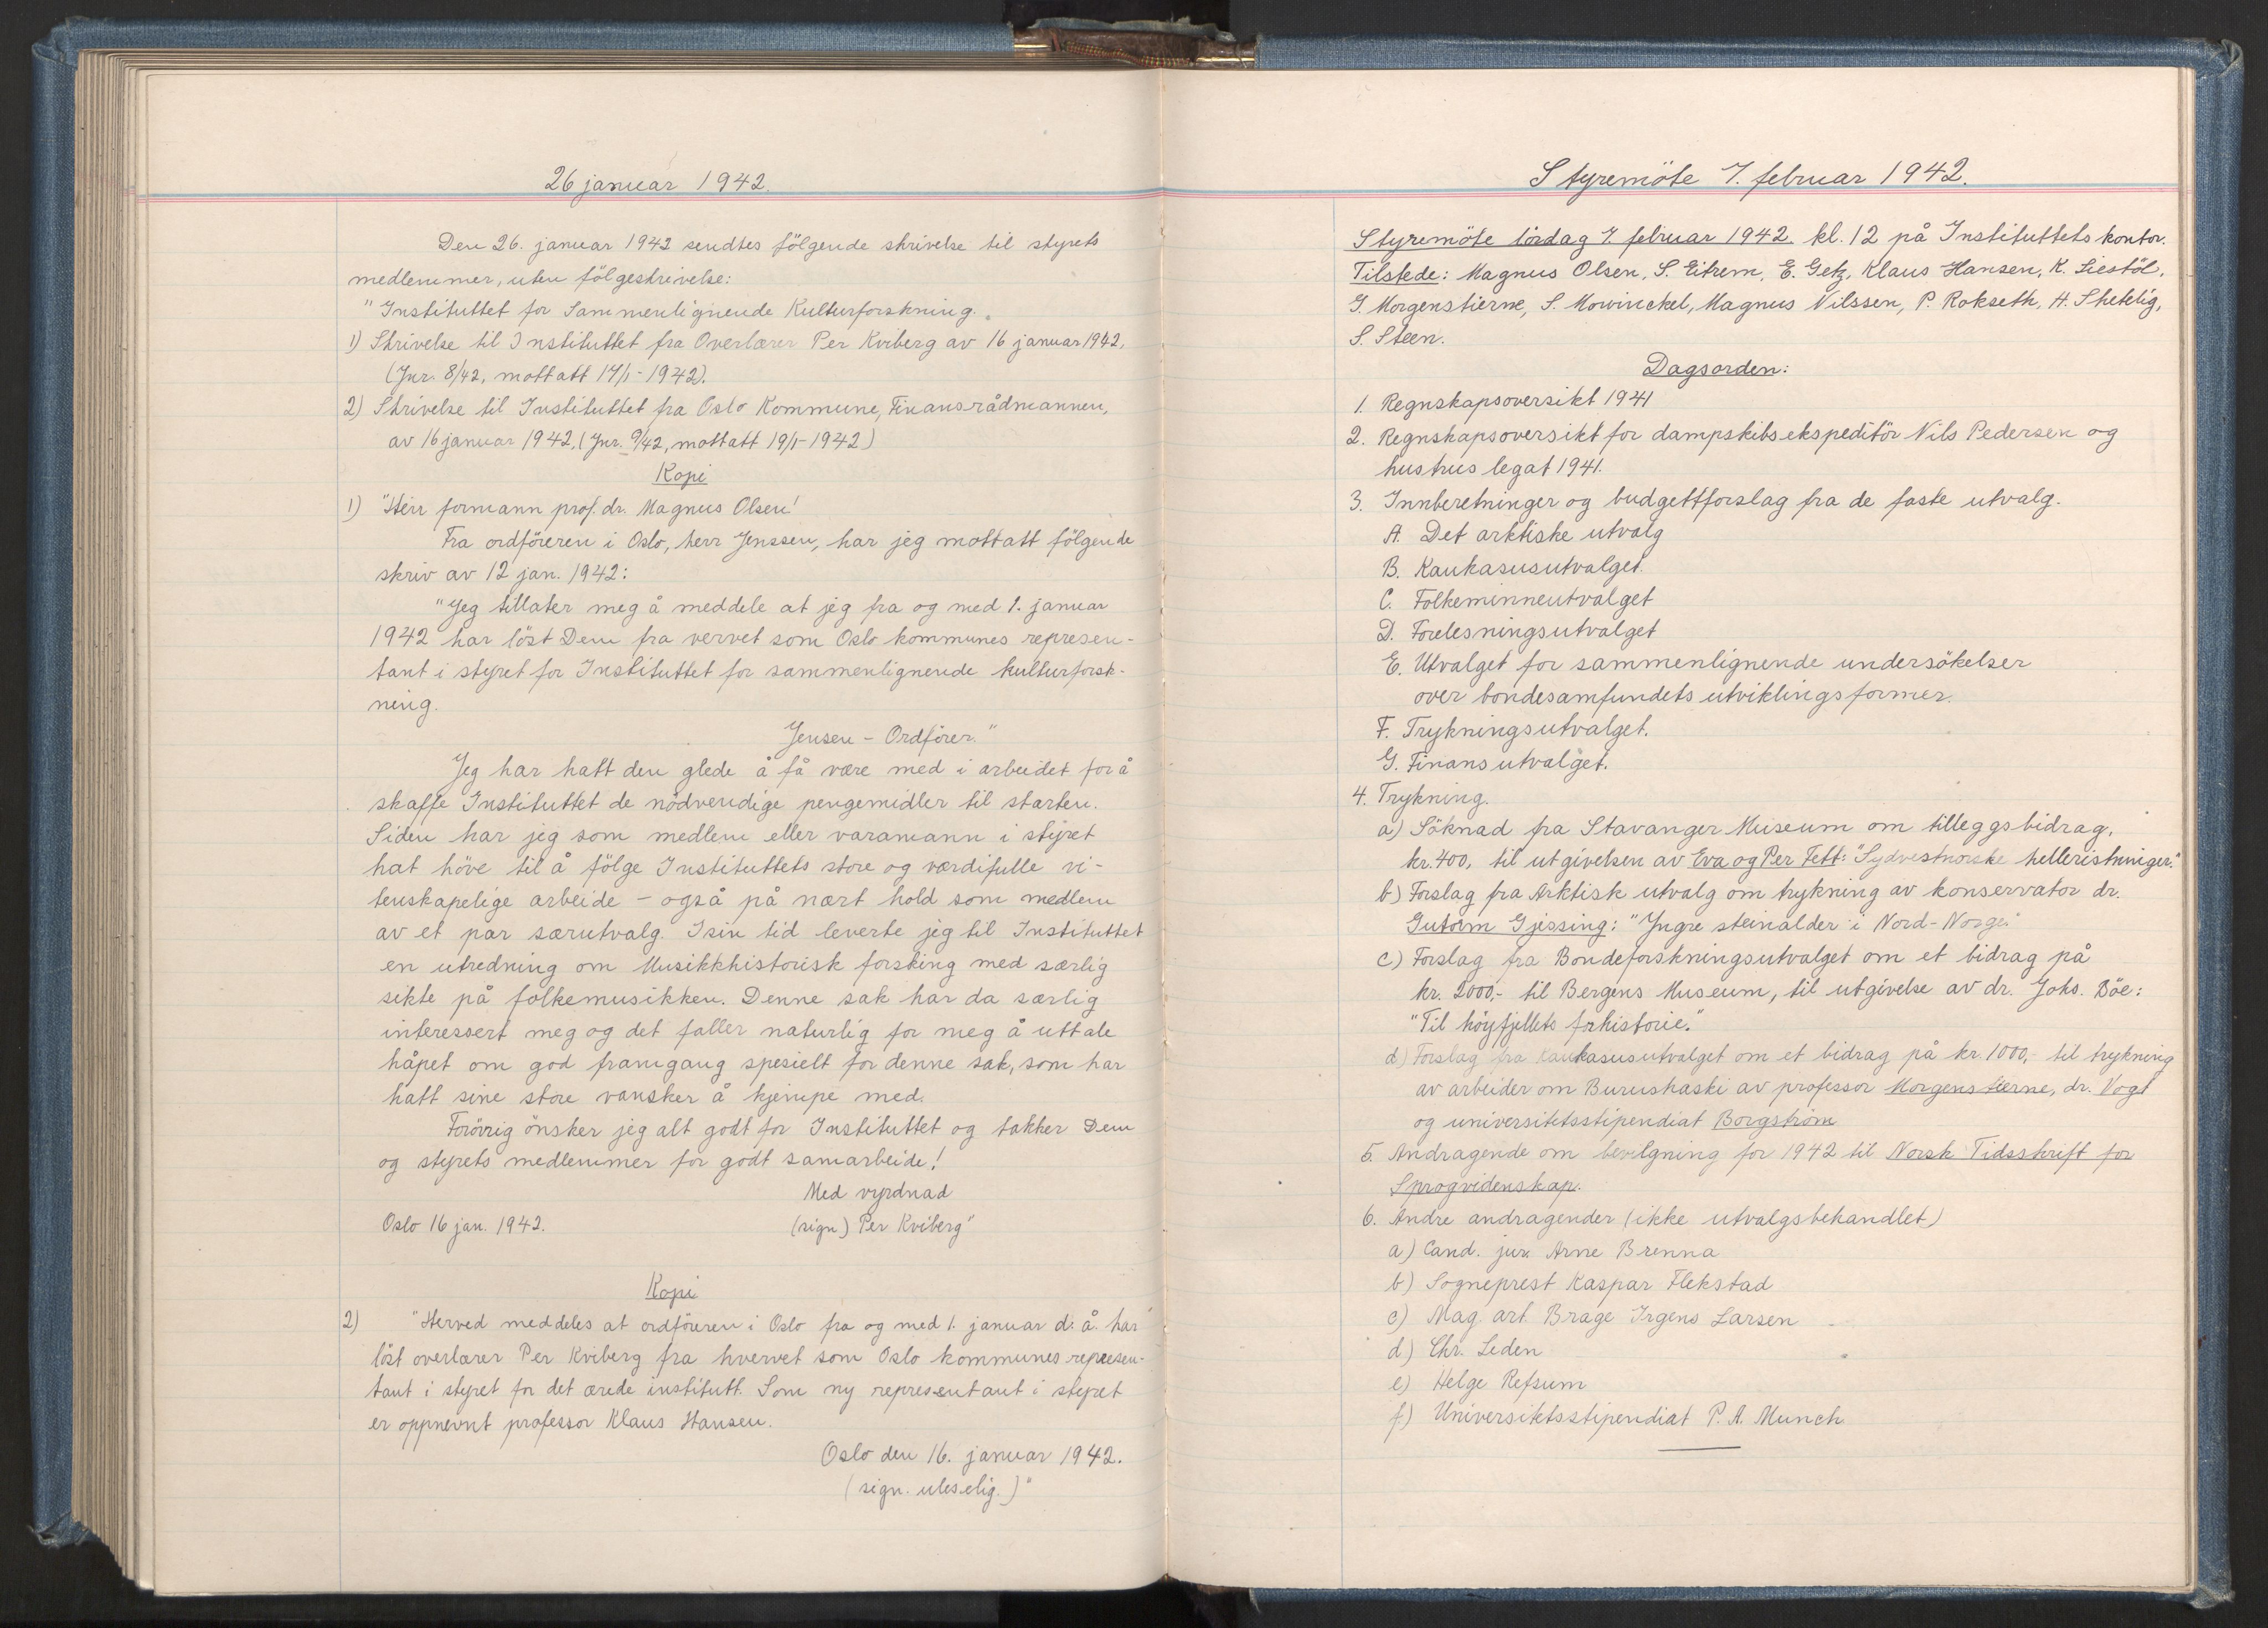 26 januar 1942.
Den 26. januar 1942 sendtes följende skrivelse til styrets
medlemmer, uten fölgeskrivelse:
"Instituttet for Sammenlignende Kulturforskning."
1) Skrivelse til Instituttet fra Overlærer Per Kviberg av 16 januar 1942.
(Jnr. 8/42, mottatt 17/1-1942).
2) Skrivelse til Instituttet fra Oslo Kommune, Finansrådmannen,
av 16 januar 1942. (Jnr. 9/42, mottatt 19/1-1942)
Kopi
1) "Herr formann prof. dr. Magnus Olsen!
Fra ordföreren i Oslo, herr Jenssen, har jeg mottatt fölgende
skriv av 12 jan. 1942:
"Jeg tillater meg å meddele at jeg fra og med 1. januar
1942 har löst Dem fra vervet som Oslo kommunes represen-
tant i styret for Instituttet for sammenlignende kulturforsk-
ning.
Jensen - Ordförer."
Jeg har hatt den glede å få være med i arbeidet for å
skaffe Instituttet de nödvendige pengemidler til starten.
Siden har jeg som medlem eller varamann i styret
hat höve til å fölge Instituttets store og værdifulle vi-
tenskapelige arbeide - også på nært hold som medlem
av et par særutvalg. I sin tid leverte jeg til Instituttet
en utredning om Musikkhistorisk forsking med særlig
sikte på folkemusikken. Denne sak har da særlig
interessert meg og det faller naturlig for meg å uttale
håpet om god framgang spesielt for denne sak, som har
hatt sine store vansker å kjempe med.
Forövrig önsker jeg alt godt for Instituttet og takker Dem
og styrets medlemmer for godt samarbeide!
Med vyrdnad
Oslo 16 jan. 1942. (sign) Per Kviberg"
Kopi
2) "Herved meddeles at ordföreren i Oslo fra og med 1. januar d. å. har
löst overlærer Per Kviberg fra hvervet som Oslo kommunes represen-
tant i styret for det ærede institutt. Som ny representant i styret
er oppnevnt professor Klaus Hansen.
Oslo den 16. januar 1942.
(sign. uleselig.)"
Styremöte 7. februar 1942.
Styremöte lördag 7. februar 1942. kl. 12 på Instituttets kontor.
Tilstede: Magnus Olsen, S. Eitrem, E. Getz, Klaus Hansen, K. Liestöl,
G. Morgenstierne, S. Mowinckel, Magnus Nilssen, P. Rokseth, H. Shetelig,
S. Steen.
Dagsorden:
1. Regnskapsoversikt 1941
2. Regnskapsoversikt for dampskibsekspeditör Nils Pedersen og
hustrus legat 1941.
3. Innberetninger og budgettforslag fra de faste utvalg.
A. Det arktiske utvalg
B. Kaukasusutvalget.
C. Folkeminneutvalget
D. Forelesningsutvalget
E. Utvalget for sammenlignende undersökelser
over bondesamfundets utviklingsformer.
F. Trykningsutvalget.
G. Finansutvalget.
4. Trykning.
a) Söknad fra Stavanger Museum om tilleggsbidrag,
kr. 400, til utgivelsen av Eva og Per Fett: "Sydvestnorske helleristninger."
b) Forslag fra Arktisk utvalg om trykning av konservator dr.
Gutorm Gjessing: "Yngre steinalder i Nord-Norge."
c) Forslag fra Bondeforskningsutvalget om et bidrag på
kr. 2000,- til Bergens Museum, til utgivelse av dr. Johs. Böe:
"Til höyfjellets forhistorie."
d) Forslag fra Kaukasusutvalget om et bidrag på kr. 1000,- til trykning
av arbeider om Burushaski av professor Morgenstierne, dr. Vogt
og universitetsstipendiat Borgström
5. Andragende om bevilgning for 1942 til Norsk Tidsskrift for
Sprogvidenskap.
6. Andre andragender (ikke utvalgsbehandlet)
a) Cand. jur. Arne Brenna
b) Sogneprest Kaspar Flekstad
c) Mag. art. Brage Irgens Larsen
d) Chr. Leden
e) Helge Refsum
f) Universitetsstipendiat P. A. Munch